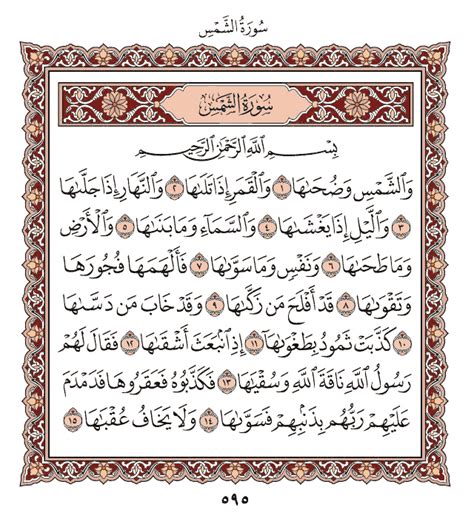 سُورَةُ الشَّمْسِ
سُورَةُ الشَّمْسِ
بِسْمِ اللَّهِ الرَّحْمَٰنِ الرَّحِيمِ
وَالشَّمْسِ وَضُحَىٰهَا ١ وَالْقَمَرِ إِذَا تَلَىٰهَا ٢ وَالنَّهَارِ إِذَا جَلَّىٰهَا
٣ وَالَّيْلِ إِذَا يَغْشَىٰهَا ٤ وَالسَّمَآءِ وَمَا بَنَىٰهَا ٥ وَالْأَرْضِ
وَمَا طَحَىٰهَا ٦ وَنَفْسٍ وَمَا سَوَّىٰهَا ٧ فَأَلْهَمَهَا فُجُورَهَا
وَتَقْوَىٰهَا ٨ قَدْ أَفْلَحَ مَن زَكَّىٰهَا ٩ وَقَدْ خَابَ مَن دَسَّىٰهَا
١٠ كَذَّبَتْ ثَمُودُ بِطَغْوَىٰهَآ ١١ إِذِ انۢبَعَثَ أَشْقَىٰهَا ١٢ فَقَالَ لَهُمْ
رَسُولُ اللَّهِ نَاقَةَ اللَّهِ وَسُقْيَىٰهَا ١٣ فَكَذَّبُوهُ فَعَقَرُوهَا فَدَمْدَمَ
عَلَيْهِمْ رَبُّهُم بِذَنۢبِهِمْ فَسَوَّىٰهَا ١٤ وَلَا يَخَافُ عُقْبَىٰهَا ١٥
٥٩٥